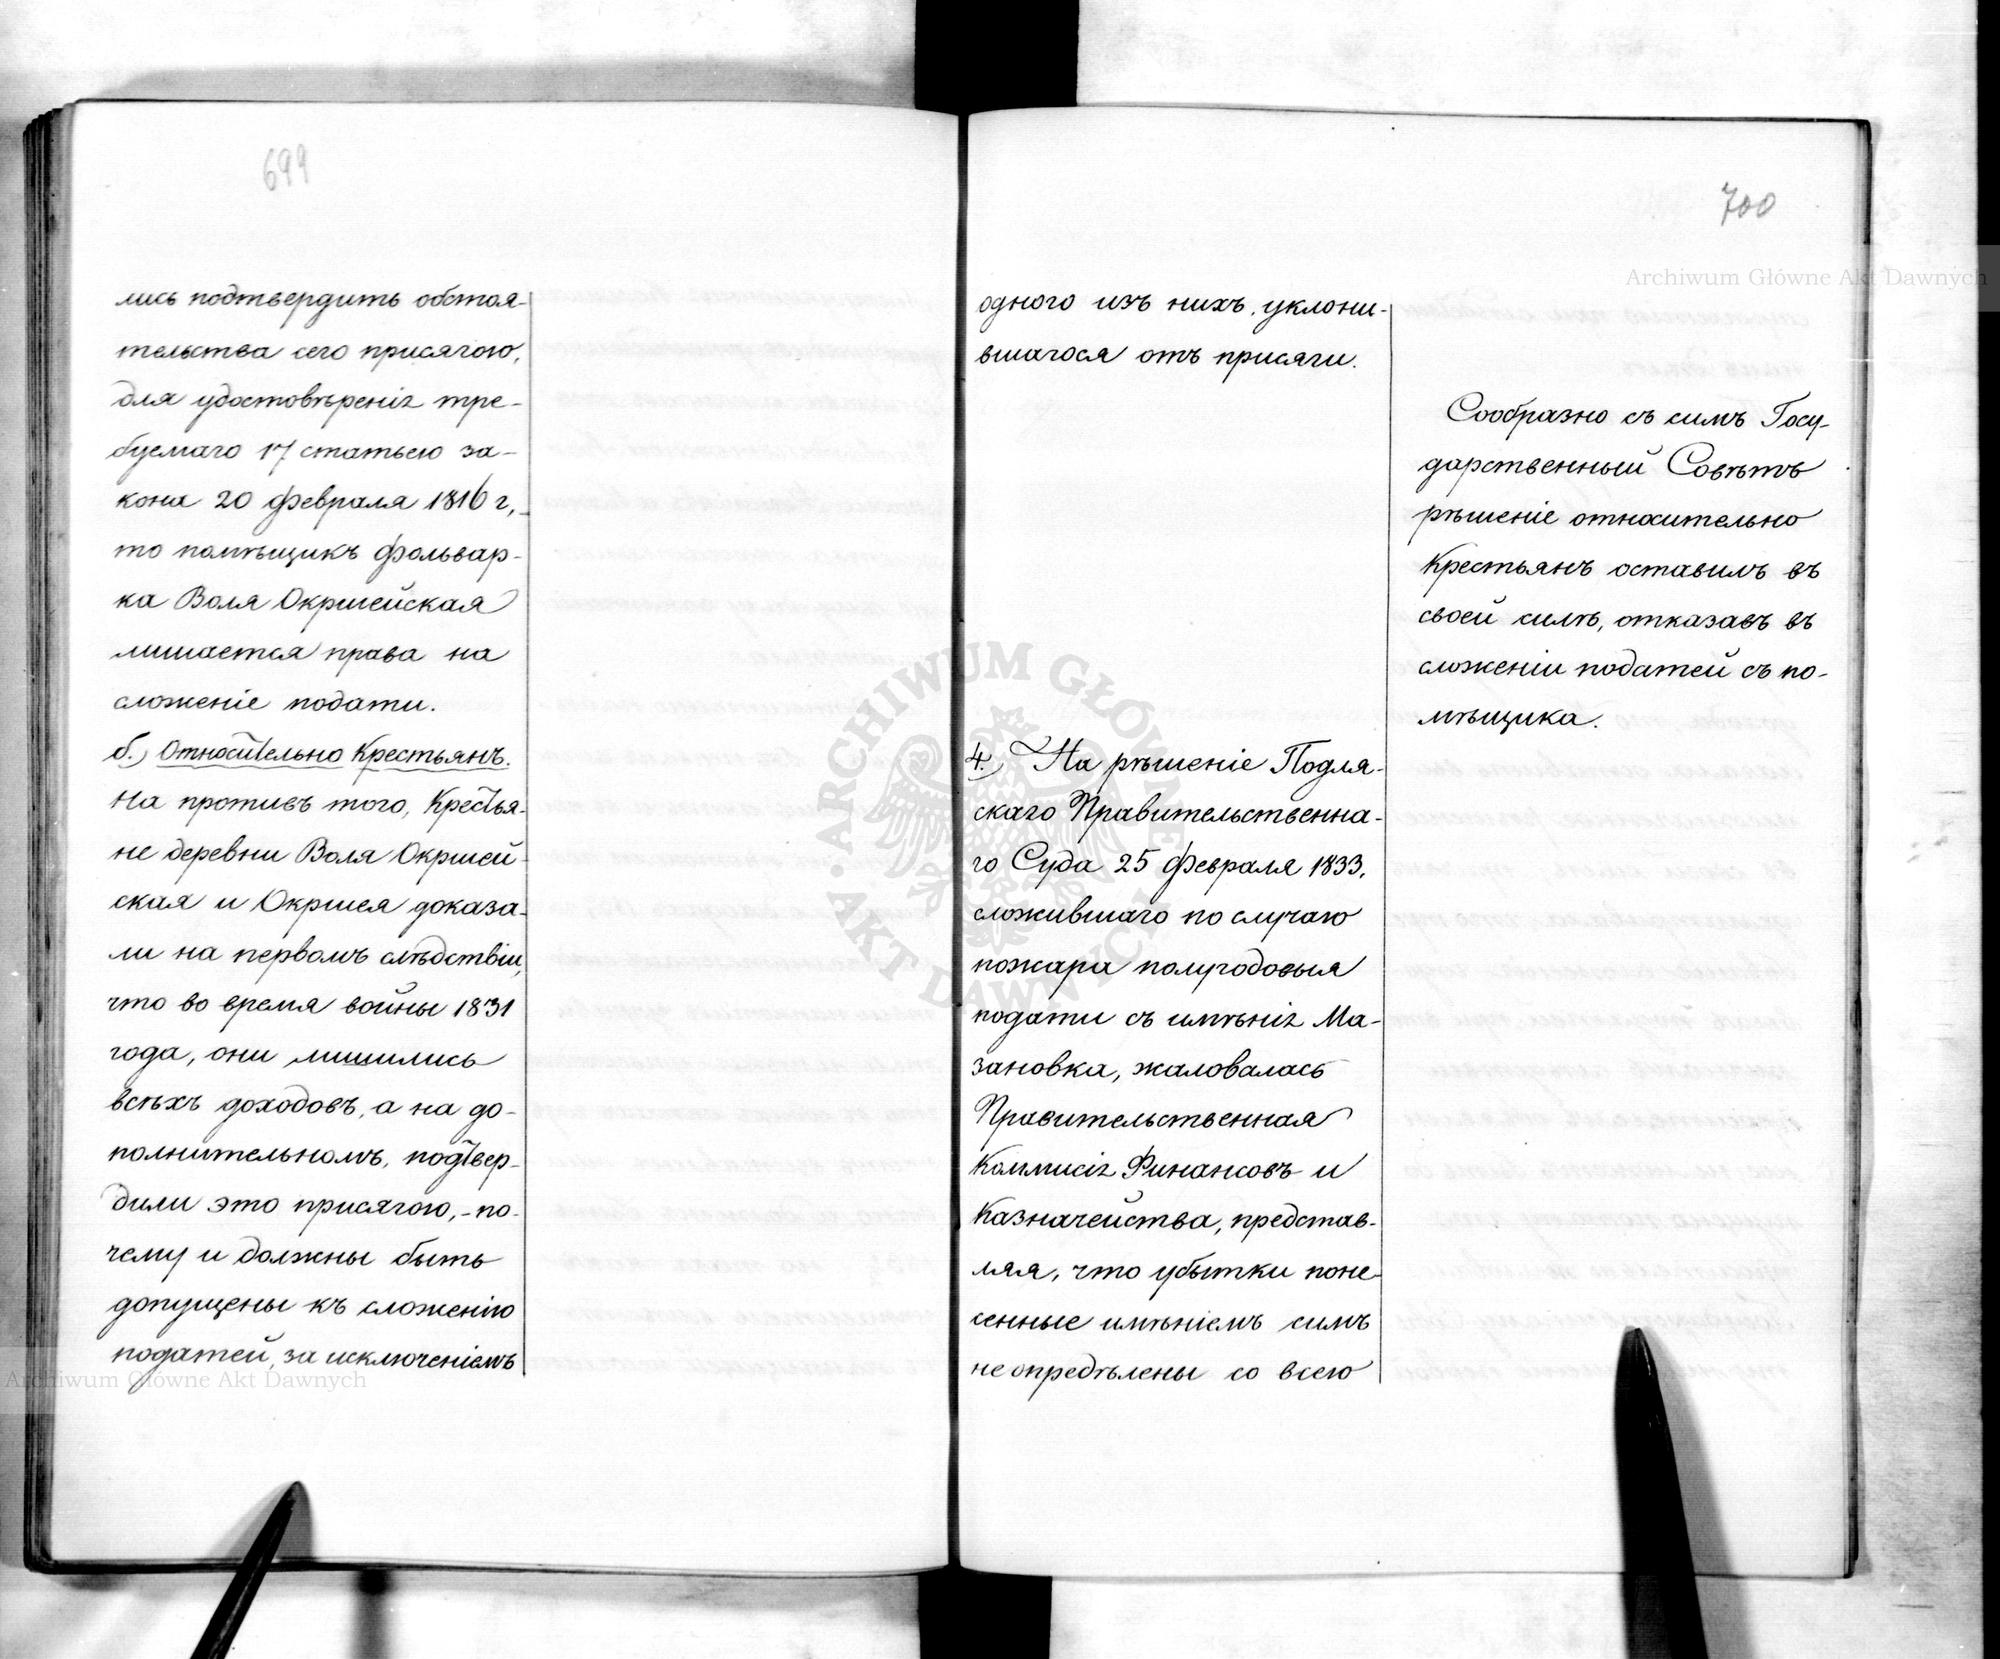 699
лись подтвердить обстоя-
тельства сего присягою,
для удостовѣренія тре-
буемаго 17 статьею за-
кона 20 Февраля 1816 г.,
то помѣщикъ фольвар-
ка Воля Окршейская
лишается права на
сложеніе подати.
б.) Относительно Крестьянъ.
На противъ того, Крестья-
не деревни Воля Окршей-
ская и Окршея доказа-
ли на первомъ слѣдствіи,
что во время войны 1831
года, они лишились
всѣхъ доходовъ, а на до-
полнительномъ, подтвер-
дили это присягою, - по-
чему и должны быть
допущены къ сложенію
податей, за исключеніемъ
700
одного изъ нихъ, уклони-
вшагося отъ присяги.
Сообразно съ симъ Госу-
дарственный Совѣтъ
рѣшеніе относительно
Крестьянъ оставилъ въ
своей силѣ, отказавъ въ
сложеніи податей съ по-
мѣщика.
4.) На рѣшеніе Подля-
скаго Правительственна-
го Суда 25 Февраля 1833,
сложившаго по случаю
пожара полугодовыя
подати съ имѣнія Ма-
зановка, жаловалась
Правительственная
Коммисія Финансовъ и
Казначейства, представ-
ляя, что убытки поне-
сенные имѣніемъ симъ
не опредѣлены со всею
Archiwum Główne Akt Dawnych
Archiwum Główne Akt Dawnych
ARCHIWUM GŁÓWNE AKT DAWNYCH